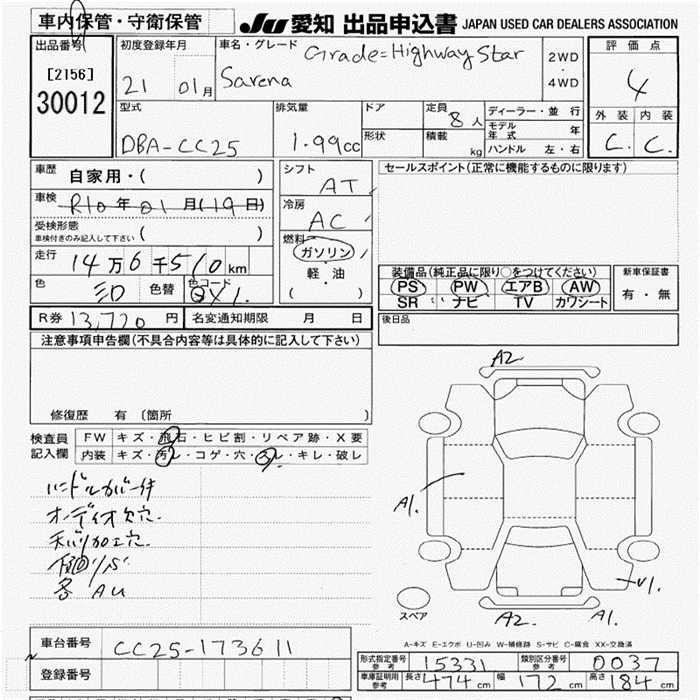 車内保管・守衛保管
JU 愛知 出品申込書 JAPAN USED CAR DEALERS ASSOCIATION
出品番号
[2156]
30012
初度登録年月
21 01月
車名・グレード
Grade=Highway Star
Sarena
2WD
・
4WD
評価点
4
外装 内装
C. C.
型式
DBA-CC25
排気量
1.99cc
ドア
形状
定員 8人
積載 kg
ディーラー・並行
モデル年式 年
ハンドル 左・右
車歴 自家用・( )
車検 R10年01月(19日)
受検形態
車検付きのみ記入して下さい ( )
走行 14万6千510km
色 色替 色コード
R券 13,720円 名変通知期限 月 日
シフト
AT
冷房
AC
燃料
ガソリン
軽・油
( )
セールスポイント(正常に機能するものに限ります)
装備品(純正品に限り○をつけてください)
PS PW エアB AW
SR ナビ TV カワシート
新車保証書
有・無
後日品
注意事項申告欄(不具合内容等は具体的に記入して下さい)
修復歴 有 〔箇所 〕
検査員
記入欄
FW キズ・飛石・ヒビ割・リペア跡・X要
内装 キズ・汚レ・コゲ・穴・スレ・キレ・破レ
ハンドルカバー付
オーディオ欠穴.
A2
A1.
A2.
A1.
スペア
A-キズ E-エクボ U-凹み W-補修跡 S-サビ C-腐食 XX-交換済
車台番号 CC25-173611
登録番号
形式指定番号 参考 15331 類別区分番号 参考 0037
車庫証明用 参考 長さ 474cm 幅 172cm 高さ 184cm